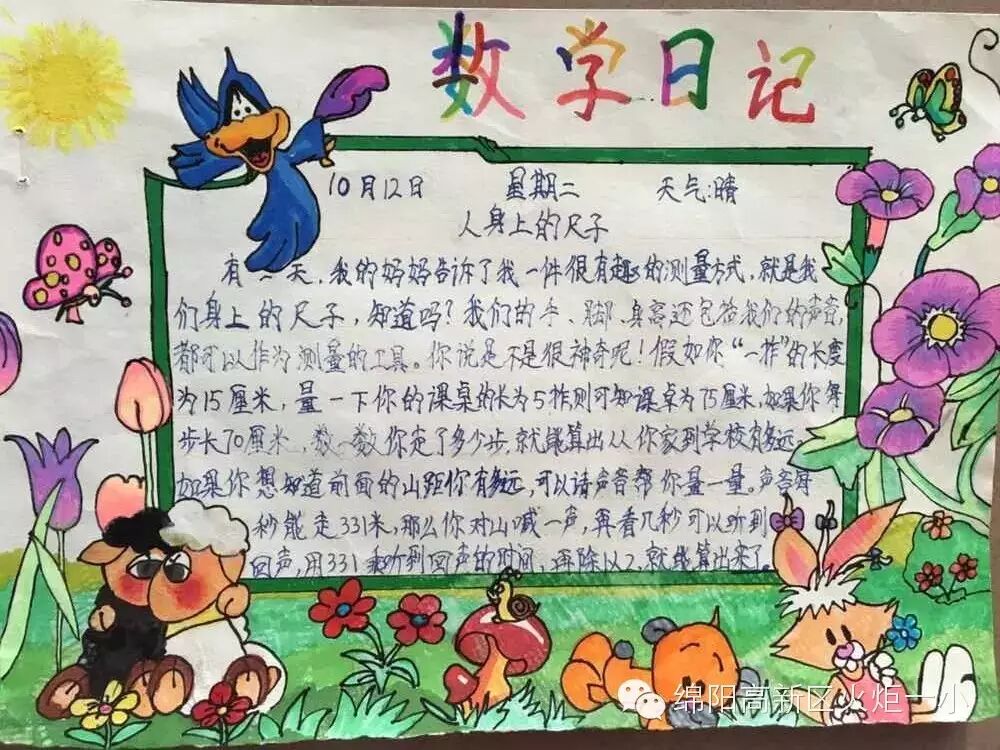 数学日记
10月12日 星期二 天气:晴
人身上的尺子
有一天,我的妈妈告诉了我一件很有趣的测量方式,就是我
们身上的尺子,知道吗?我们的手、脚、身高还包括我们的声音,
都可以作为测量的工具。你说是不是很神奇呢!假如你“一拃”的长度
为15厘米,量一下你的课桌的长为5拃则可知课桌为75厘米,如果你每
步长70厘米,数一数你走了多少步,就能算出从你家到学校有多远。
如果你想知道前面的山距你有多远,可以请声音帮你量一量。声音每
秒能走331米,那么你对山喊一声,再看几秒可以听到
回声,用331乘听到回声的时间,再除以2,就能算出来了。
绵阳高新区火炬一小